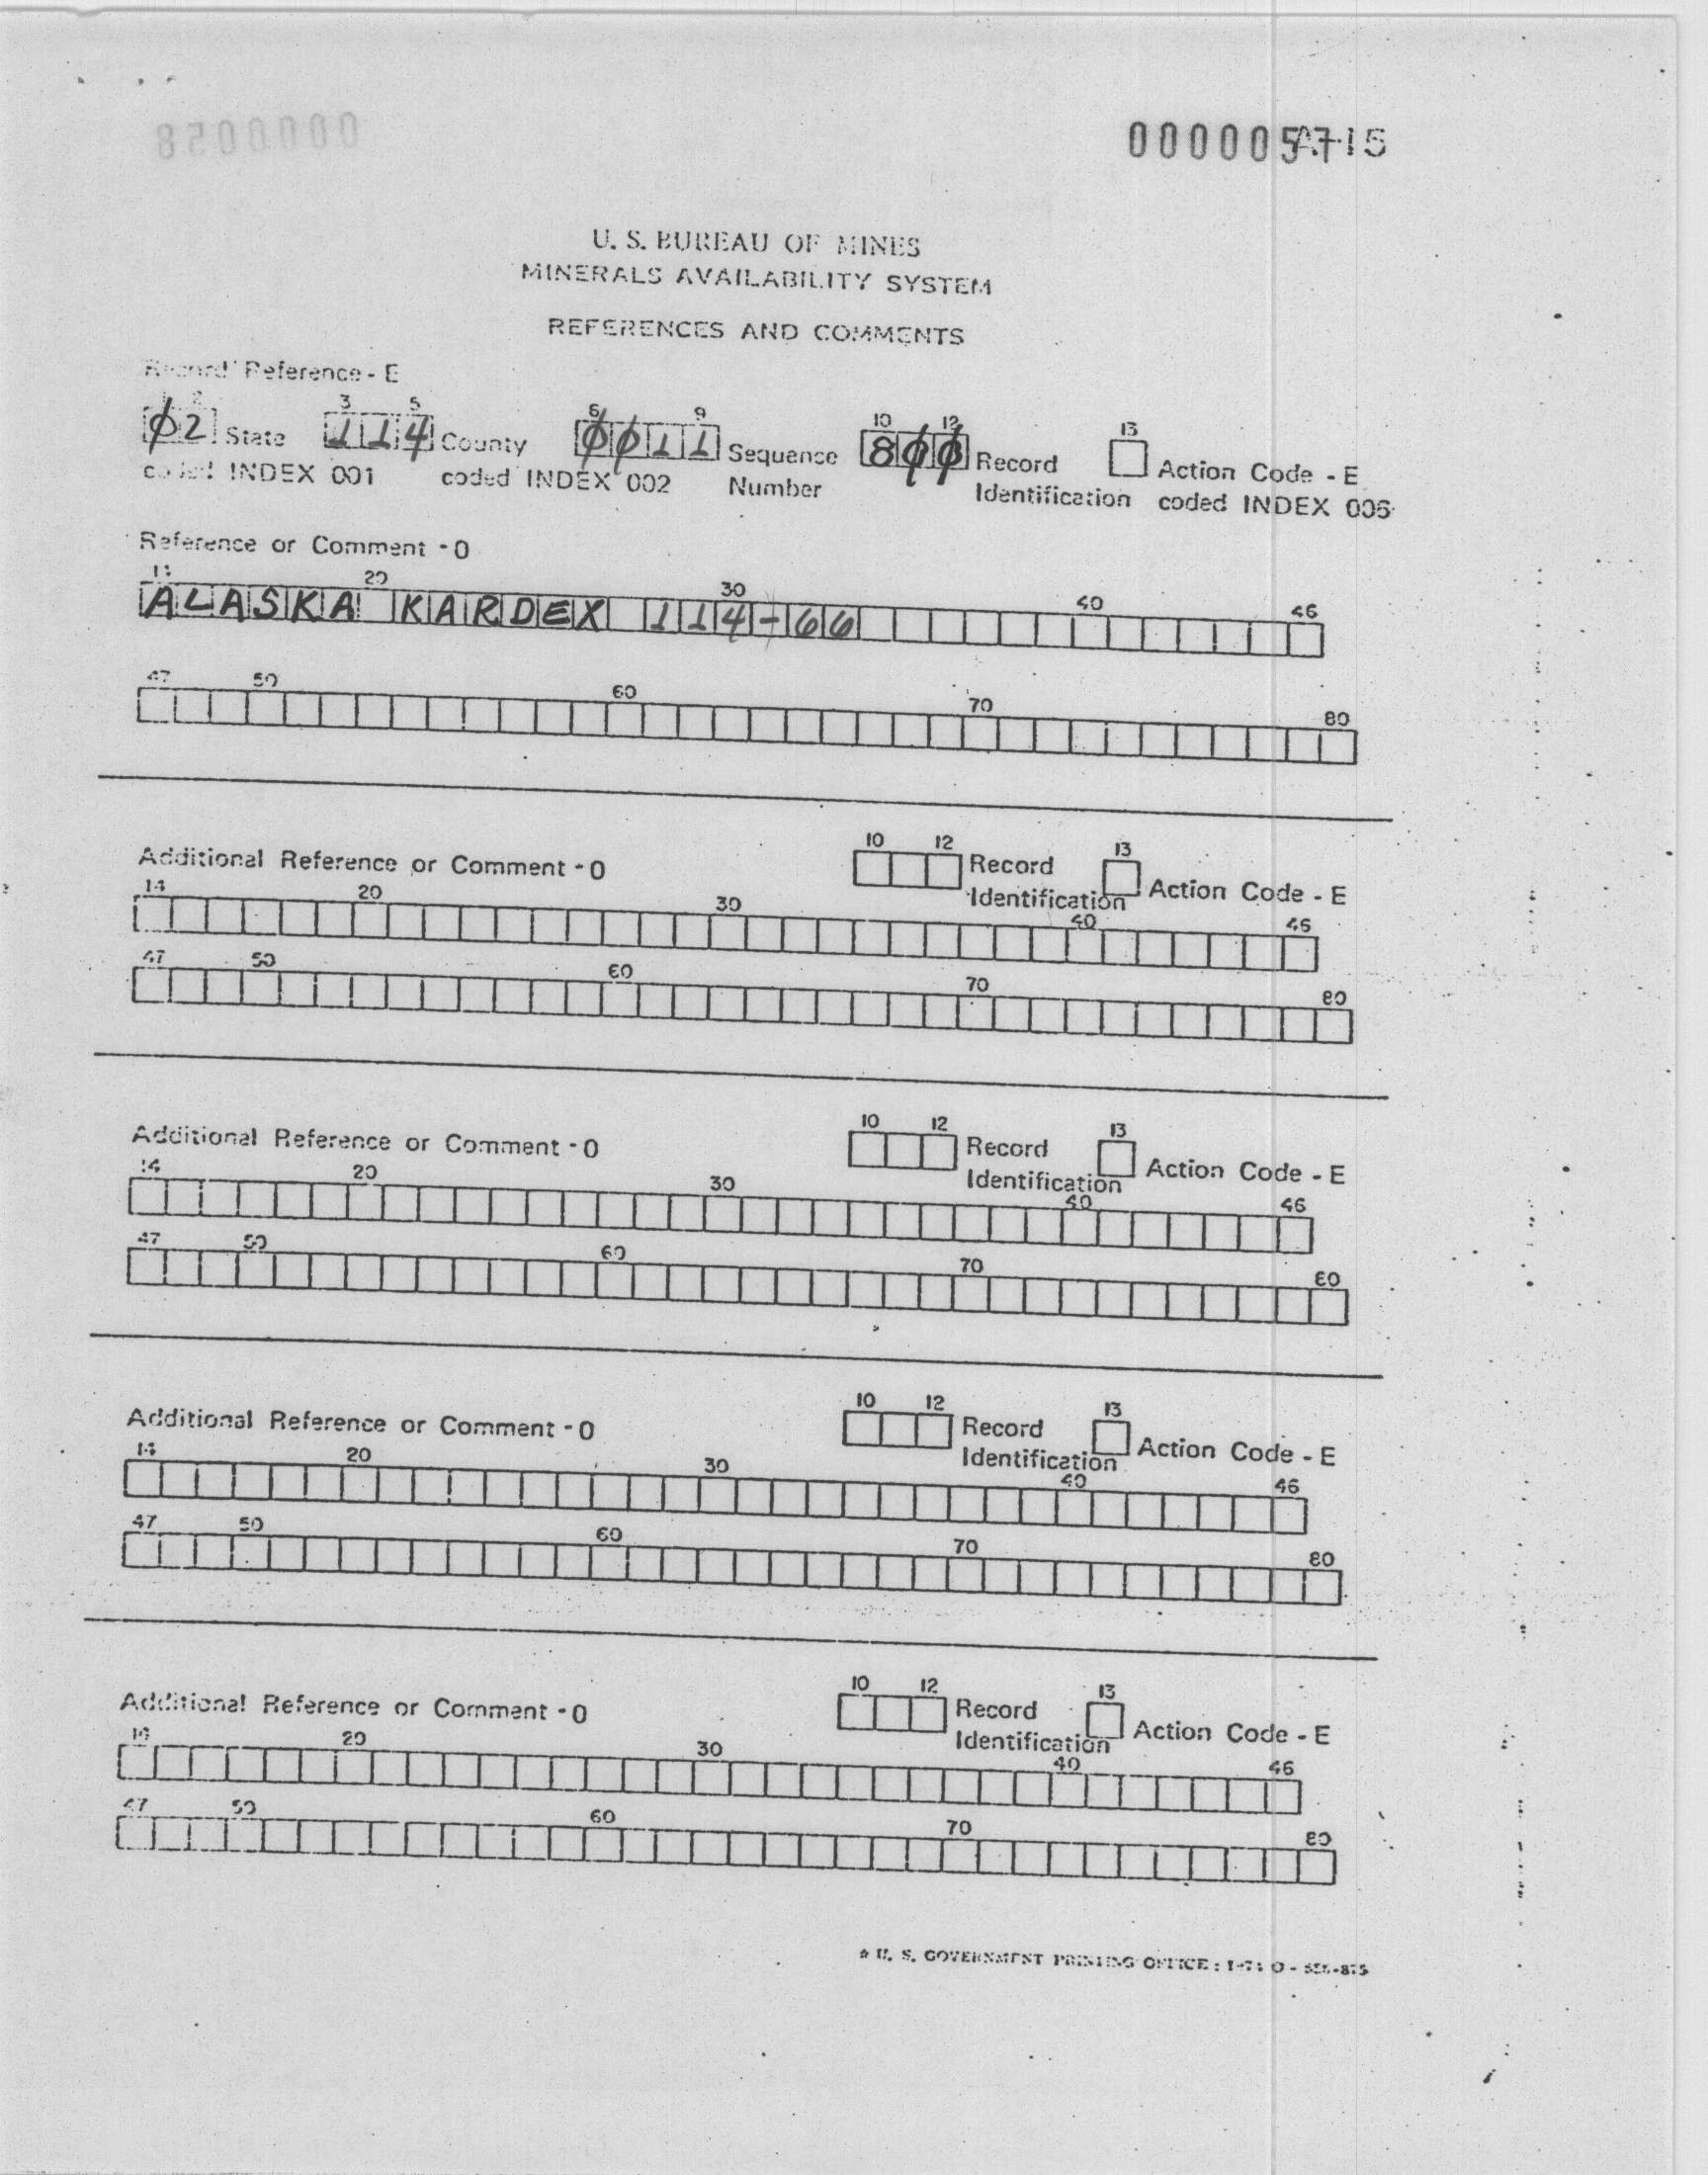 8500000
00000057 A-15
U. S. BUREAU OF MINES
MINERALS AVAILABILITY SYSTEM
REFERENCES AND COMMENTS
Record Reference - E
2 3 5 6 9 10 12 13
02 State 114 County 0011 Sequence 800 Record Action Code - E
coded INDEX 001 coded INDEX 002 Number Identification coded INDEX 006
Reference or Comment - O
14 20 30 40 46
ALASKA KARDEX 114-66
47 50 60 70 80
10 12 13
Additional Reference or Comment - O Record
Identification Action Code - E
14 20 30 40 46
47 50 60 70 80
10 12 13
Additional Reference or Comment - O Record
Identification Action Code - E
14 20 30 40 46
47 50 60 70 80
10 12 13
Additional Reference or Comment - O Record
Identification Action Code - E
14 20 30 40 46
47 50 60 70 80
10 12 13
Additional Reference or Comment - O Record
Identification Action Code - E
14 20 30 40 46
47 50 60 70 80
☆ U. S. GOVERNMENT PRINTING OFFICE :